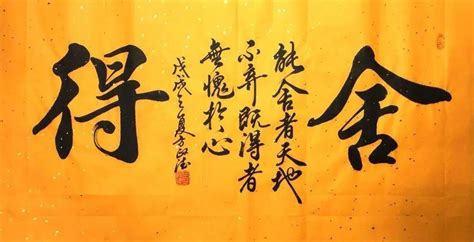 舍
能舍者天地
不弃既得者
無愧於心
戊戌之夏
得